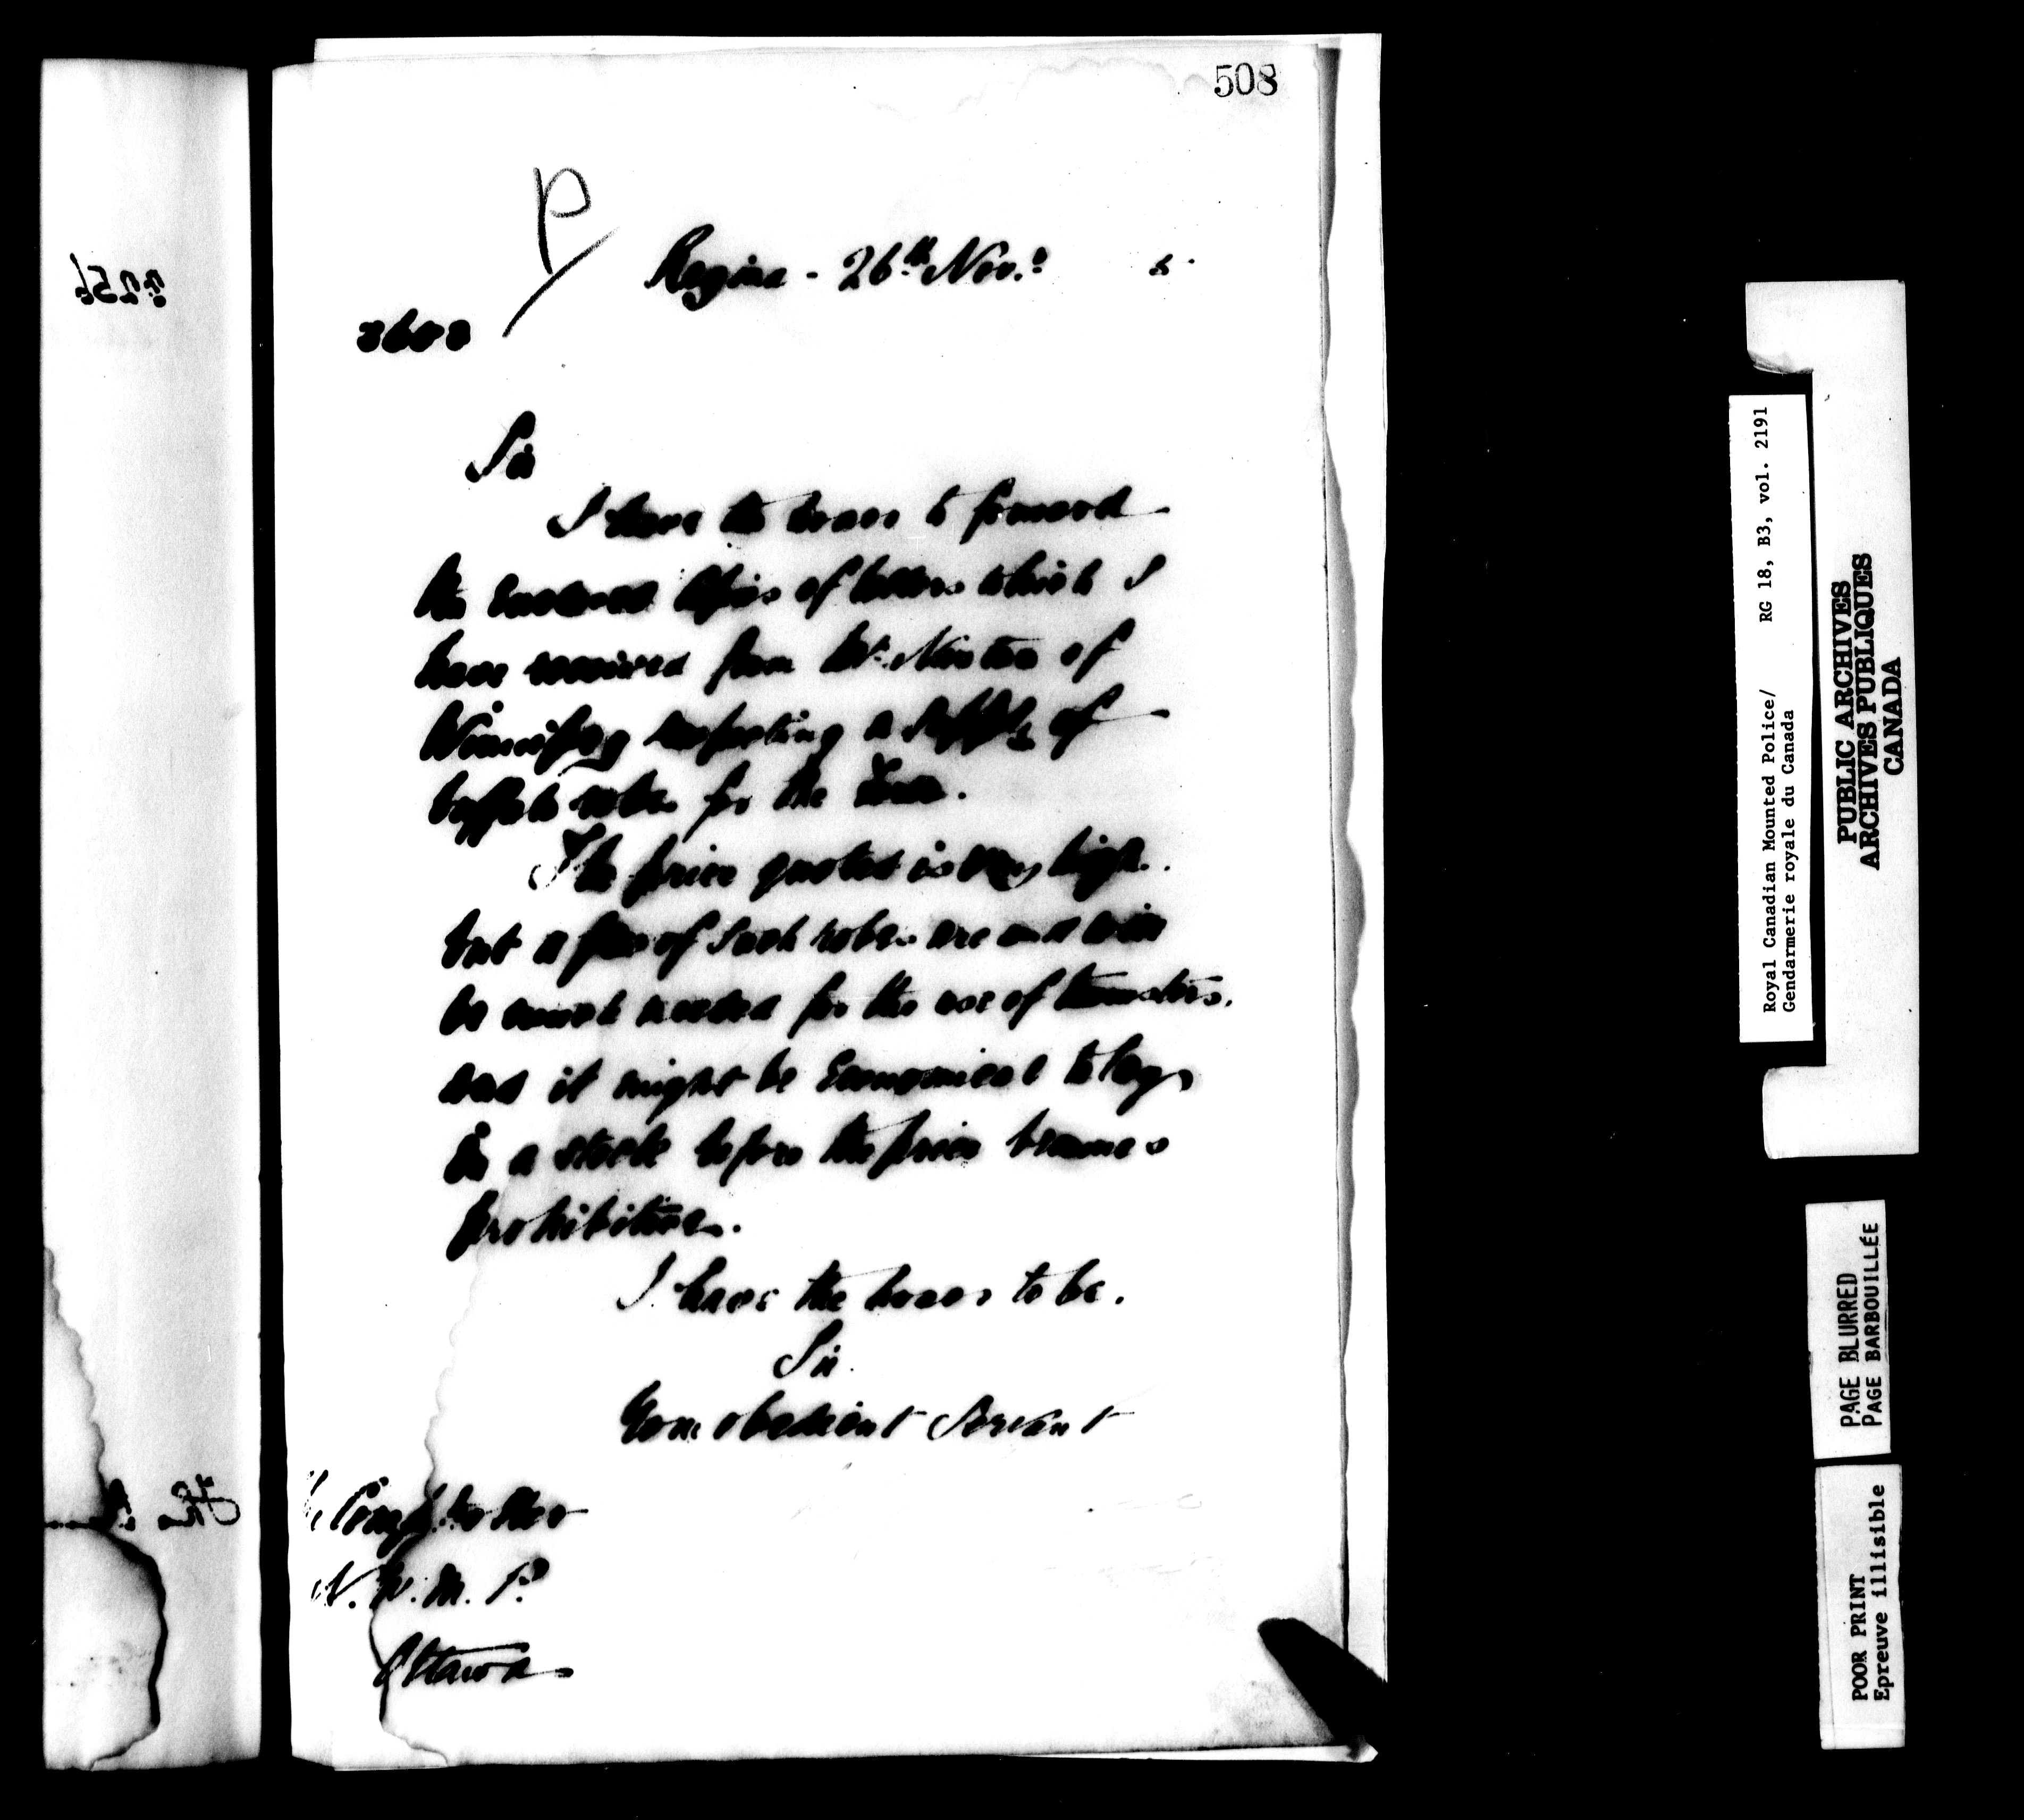 508
P
Regina - 26th Novr 5
Sir
I have the honor to forward
the enclosed copies of letters which I
have received from Mr. Newton of
Winnipeg respecting a supply of
buffalo robes for the Force.
The price quoted is very high.
but a few of such robes are and will
be much needed for the use of teamsters.
and it might be economical to lay
in a stock before the price becomes
prohibitive.
I have the honor to be.
Sir
Your obedient Servant
N. W. M. P.
Ottawa
Royal Canadian Mounted Police/ RG 18, B3, vol. 2191
Gendarmerie royale du Canada
PUBLIC ARCHIVES
ARCHIVES PUBLIQUES
CANADA
PAGE BLURRED
PAGE BARBOUILLÉE
POOR PRINT
Epreuve illisible